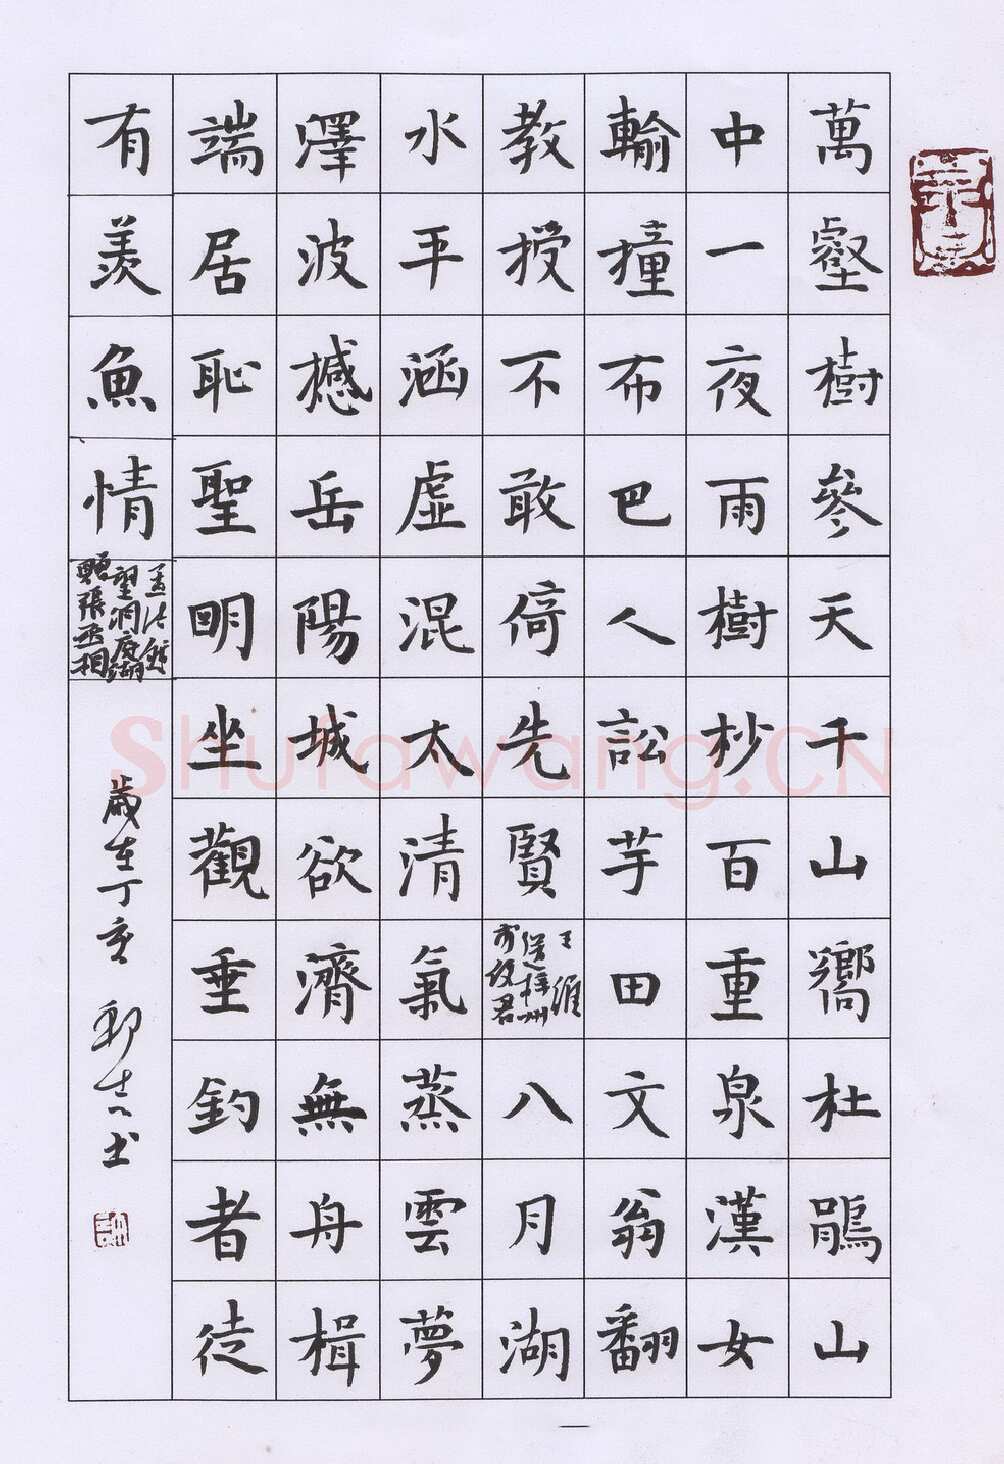 萬壑樹參天千山嚮杜鵑山
中一夜雨樹杪百重泉漢女
輸撞布巴人訟芋田文翁翻
教授不敢倚先賢
王維
送梓州
李使君
八月湖
水平涵虛混太清氣蒸雲夢
澤波撼岳陽城欲濟無舟楫
端居恥聖明坐觀垂釣者徒
有羨魚情
孟浩然
望洞庭湖
贈張丞相
歲在丁亥
書
Shufawang.CN